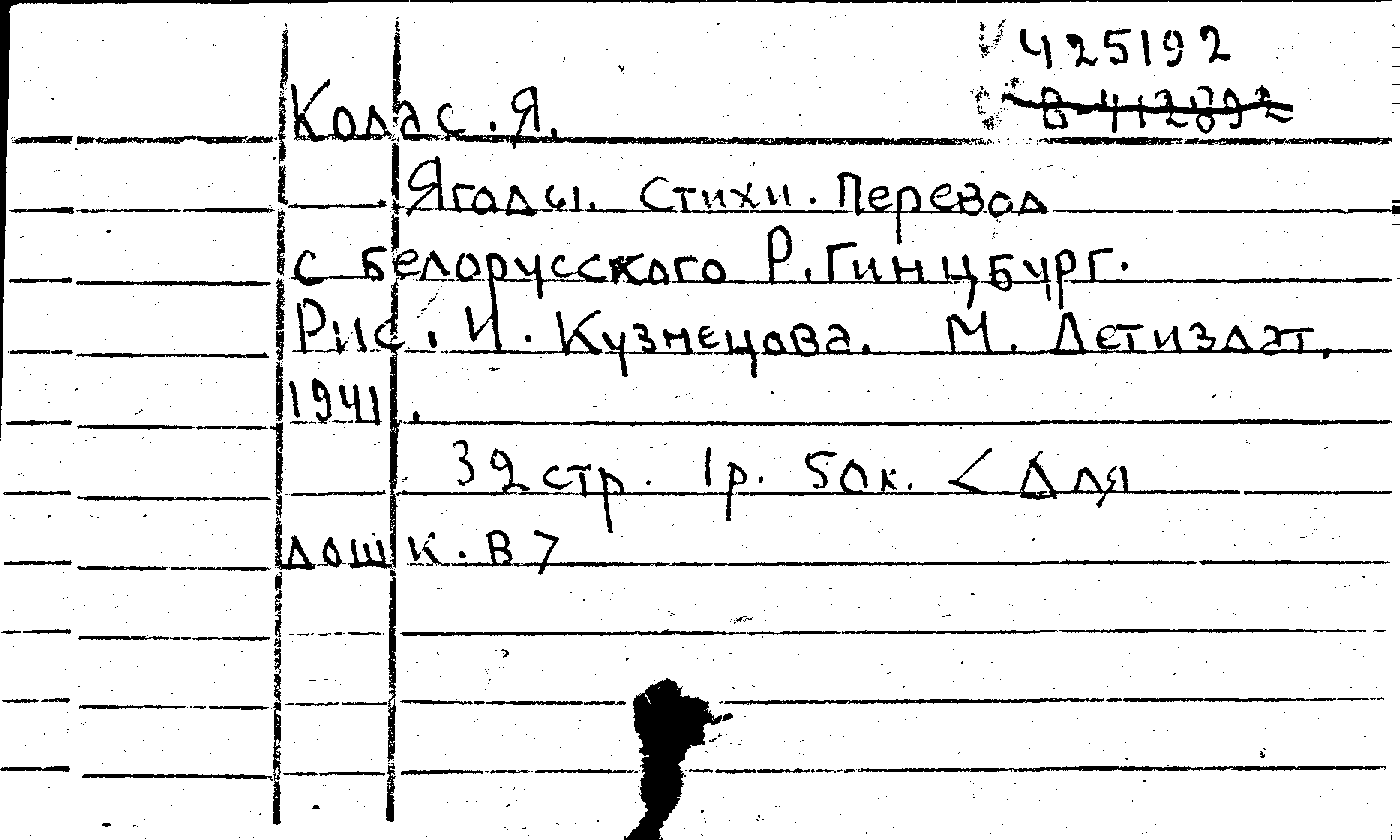 425192
В-412892
Колас. Я.
Ягоды. Стихи. Перевод
с белорусского Р. Гинцбург.
Рис. И. Кузнецова. М. Детиздат,
1941.
32 стр. 1р. 50к. < Для
дошк. в >